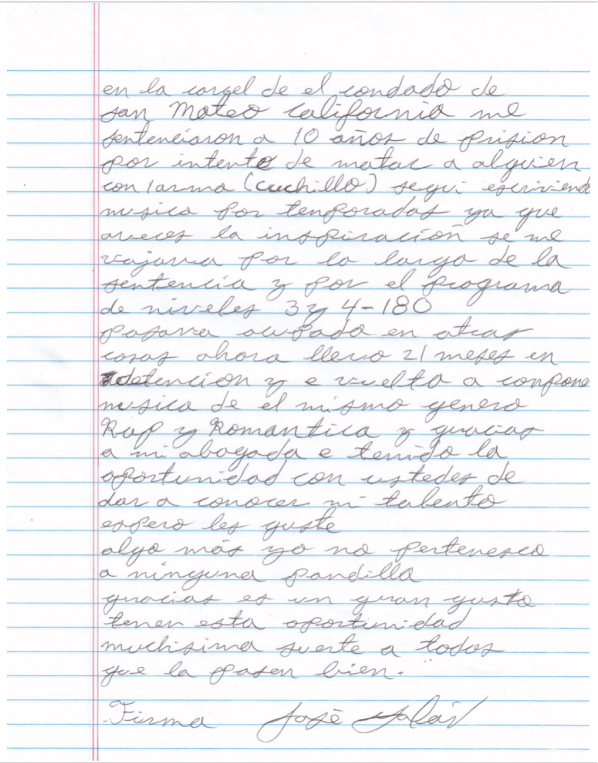 en la carsel de el condado de
san Mateo california me
sentenciaron a 10 años de prision
por intento de matar a alguien
con larma (cuchillo) segui escriviendo
musica por temporadas ya que
aveces la inspiración se me
vajava por lo largo de la
sentencia y por el programa
de niveles 3 y 4-180
pasava ocupado en otras
cosas ahora llevo 21 meses en
detencion y e vuelto a compone
musica de el mismo genero
Rap y Romantica y gracias
a mi abogada e tenido la
oportunidad con ustedes de
dar a conocer mi talento
espero les guste
algo más yo no pertenesco
a ninguna pandilla
gracias es un gran gusto
tener esta oportunidad
muchisima suerte a todos
que la pasen bien.
Firma José